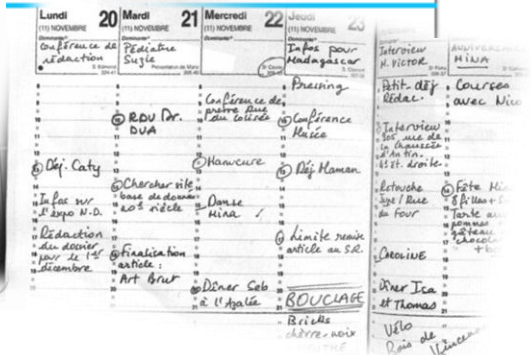 Lundi 20
(11) NOVEMBRE
Dominante
Conférence de
rédaction
Déj. Caty
Infos sur
l'expo N.D.
Rédaction
du dossier
pour le 1er
décembre
Mardi 21
(11) NOVEMBRE
Dominante
Pédiatre
RDV Dr.
DUA
Chercher site
base de données
20e siècle
Finalisation
article :
Art Brut
Mercredi 22
(11) NOVEMBRE
Dominante
Conférence de
presse Rue
du Colisée
Manucure
Danse
Mina
Dîner Seb
à l'Azalée
Jeudi 23
(11) NOVEMBRE
Infos pour
Madagascar
Pressing
Conférence
Musée
Déj Maman
Limite remise
article au S.R.
BOUCLAGE
Bricks
chèvre-noix
Interview
H. VICTOR
Petit déj
Rédac.
Interview
105, rue de
la Chaussée
d'Antin.
et. droite.
Retouche
Rue
du Four
CAROLINE
Dîner Ica
et Thomas
Vélo
Bois de Vincennes
ANNIVERSAIRE
MINA
Courses
avec Nic
Fête Mi
8 filles +
Tarte au
pommes
gâteau
chocola